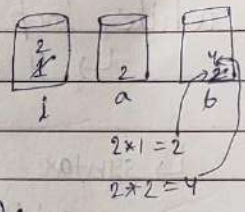 2 4
1 2 2
i a b
2*1=2
2*2=4